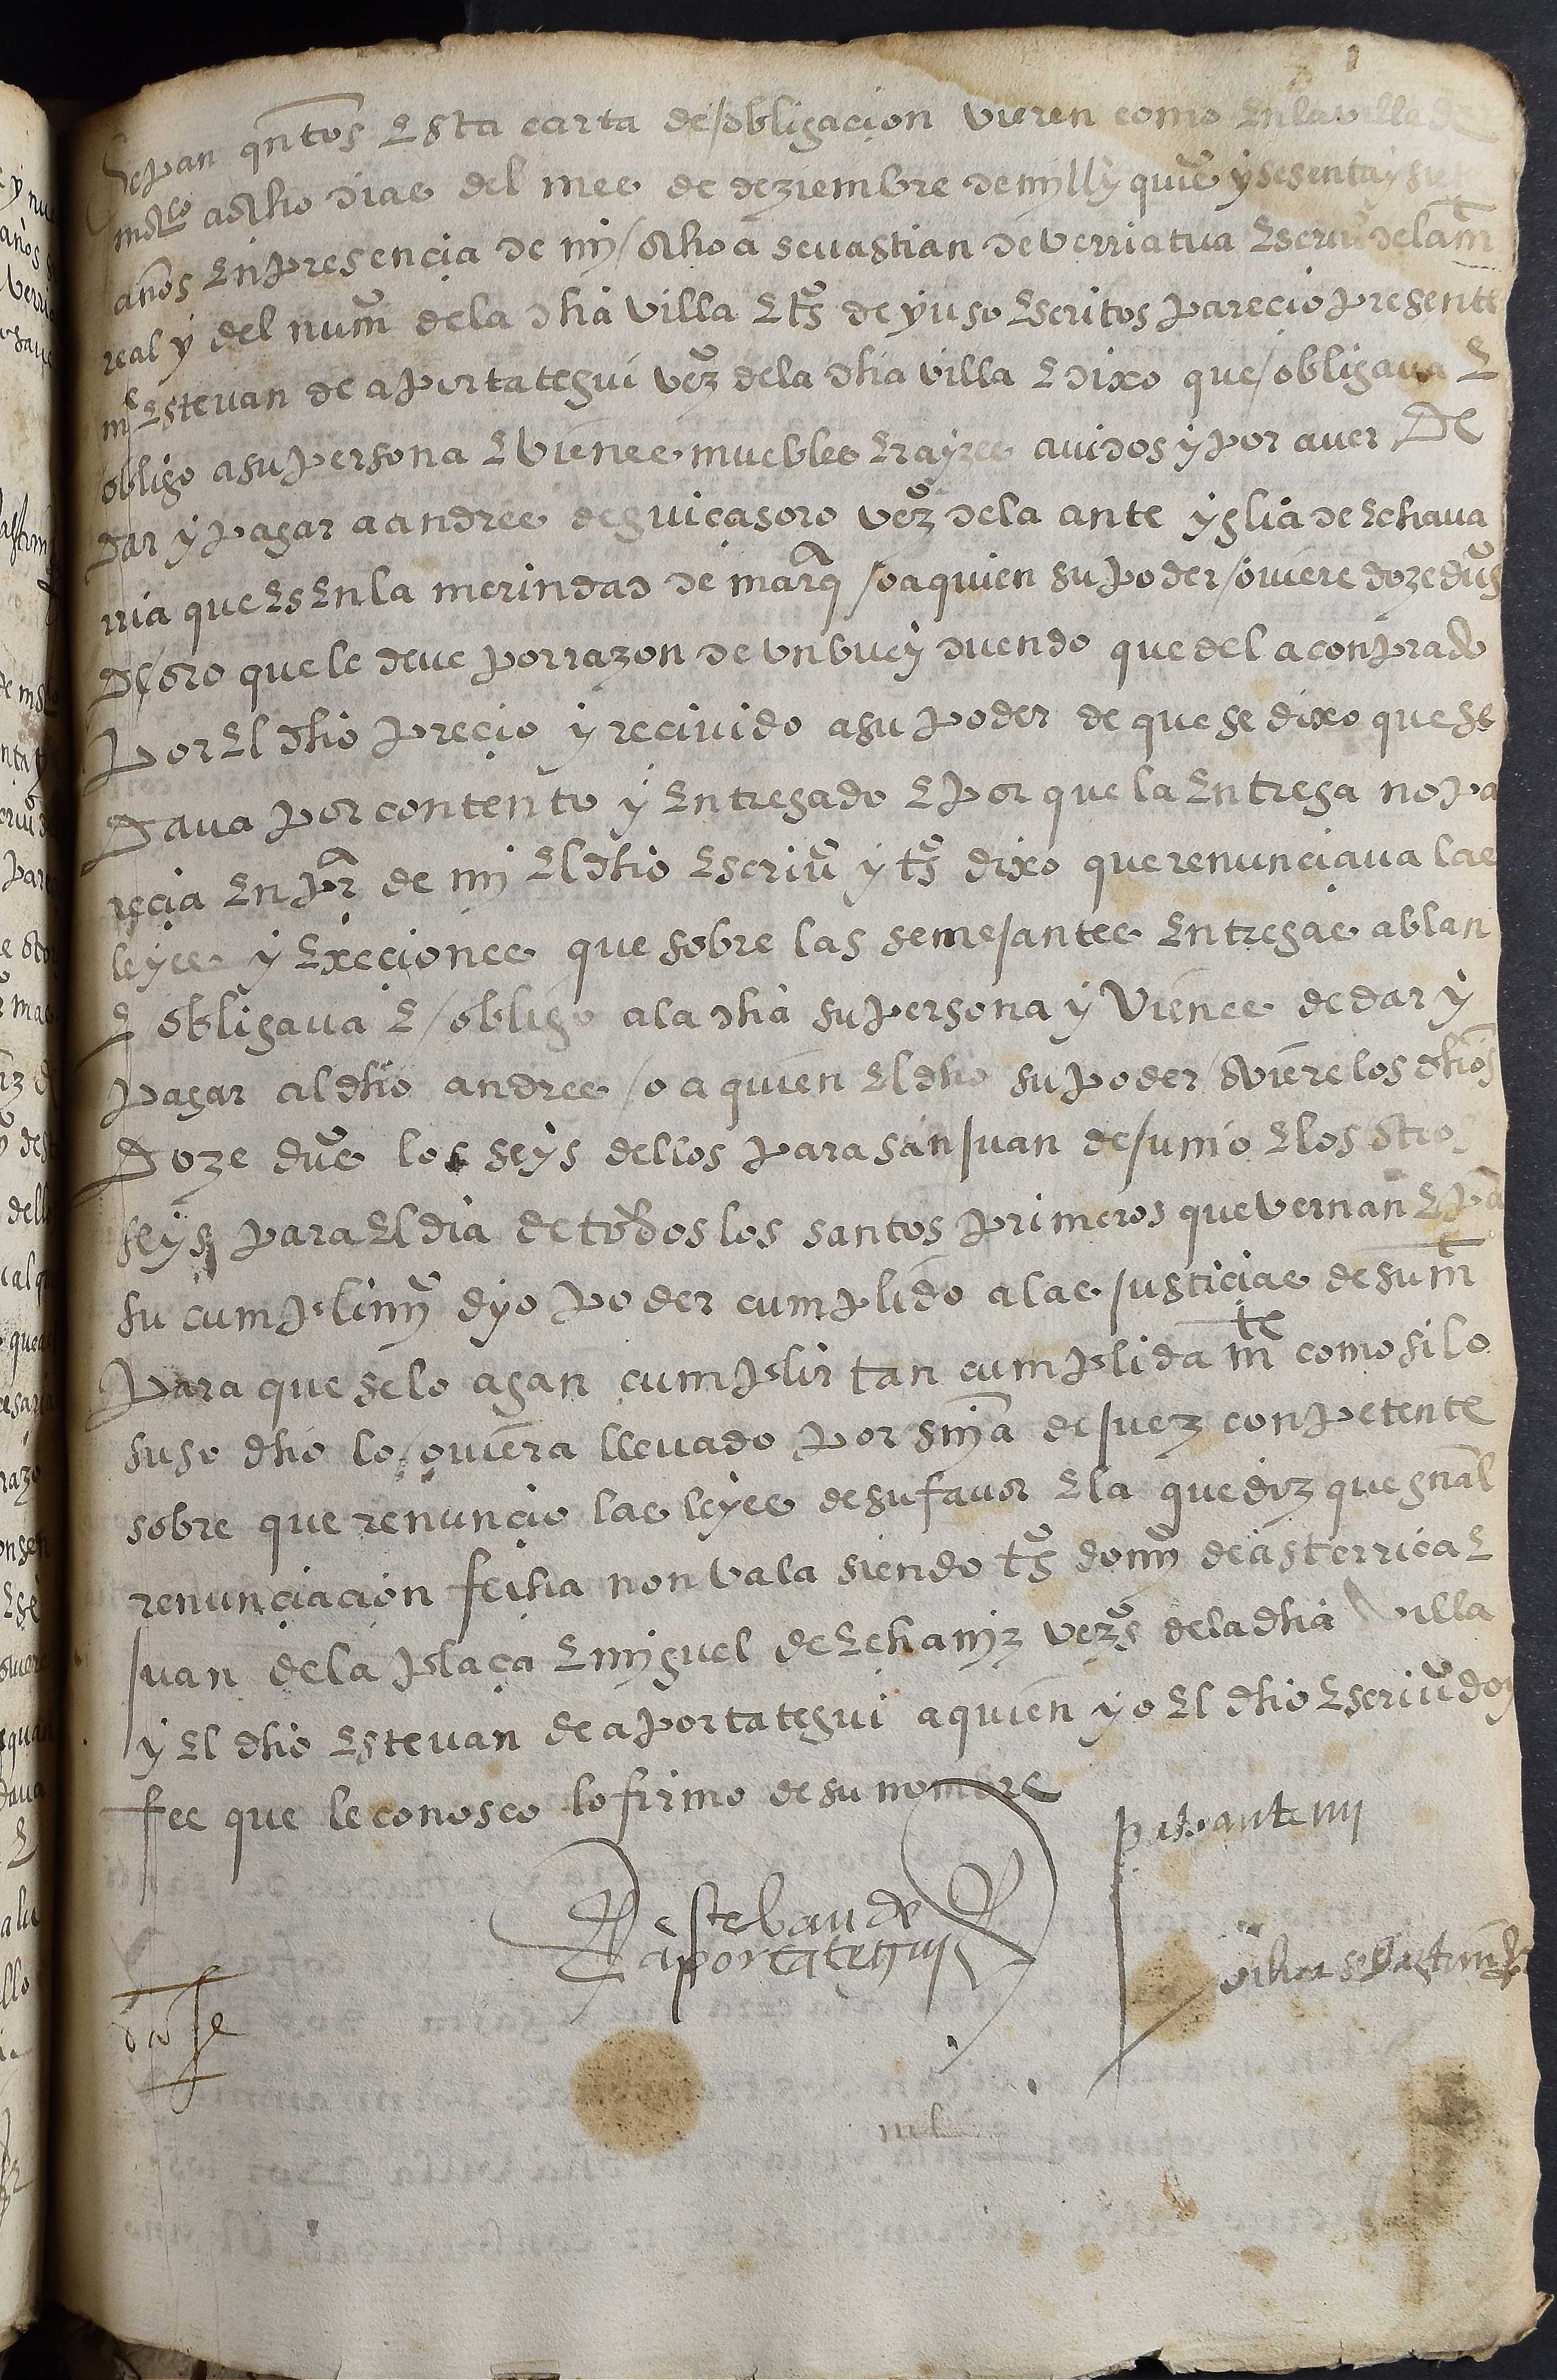 Sepan qntos Esta carta de/obligacion vieren como En la villa de
mqro a ocho dias del mes de deziembre de mill y quis y sesenta y siete
años En presencia de mi / ochoa sevastian de verriatua Escriuo de la mt
real y del num de la dha villa E ts de yuso Escritos parecio presente
mte Estevan de aportategui vezo de la dha villa E dixo que /obligaua E
obligo a su persona E vienes muebles E rayzes avidos y por aver De
dar y pagar a andres de guicasoro vezo de la ante yglia de Echava
rria que Es En la merindad de marqa /o a quien su poder /oviere doze dus
de/oro que le deve por razon de vn buey duendo que del a conprado
por El dho precio y recivido a su poder de que se dixo que se
Dava por contento y Entregado E por que la Entrega no pa
recia En pra de mi El dho Escriuo y ts dixo que renunciava las
leyes y Exeçiones que sobre las semejantes Entregas ablan
E obligava E /obligo a la dha su persona y Vienes de dar y
pagar al dho andres /o a quien El dho su poder /oviere los dhos
Doze dus los seys dellos para san juan de junio E los otros
seys para El dia de todos los santos primeros que vernan E pa
su cumplimio dyo poder cumplido a las justicias de su mt
para que se lo agan cumplir tan cumplida mte como si lo
suso dho lo /oviera llevado por snya de juez conpetente
sobre que renuncio las leyes de su favor E la que diz que gnal
renunciacion fecha non vala siendo ts domi de asterrica E
juan de la plaça E miguel de Echaniz vezos de la dha Villa
y El dho Estevan de aportategui a quien yo El dho Escriuo doy
fee que le conosco lo firmo de su nombre
paso ante mi
esteban de
aportategui
ochoa sebastian